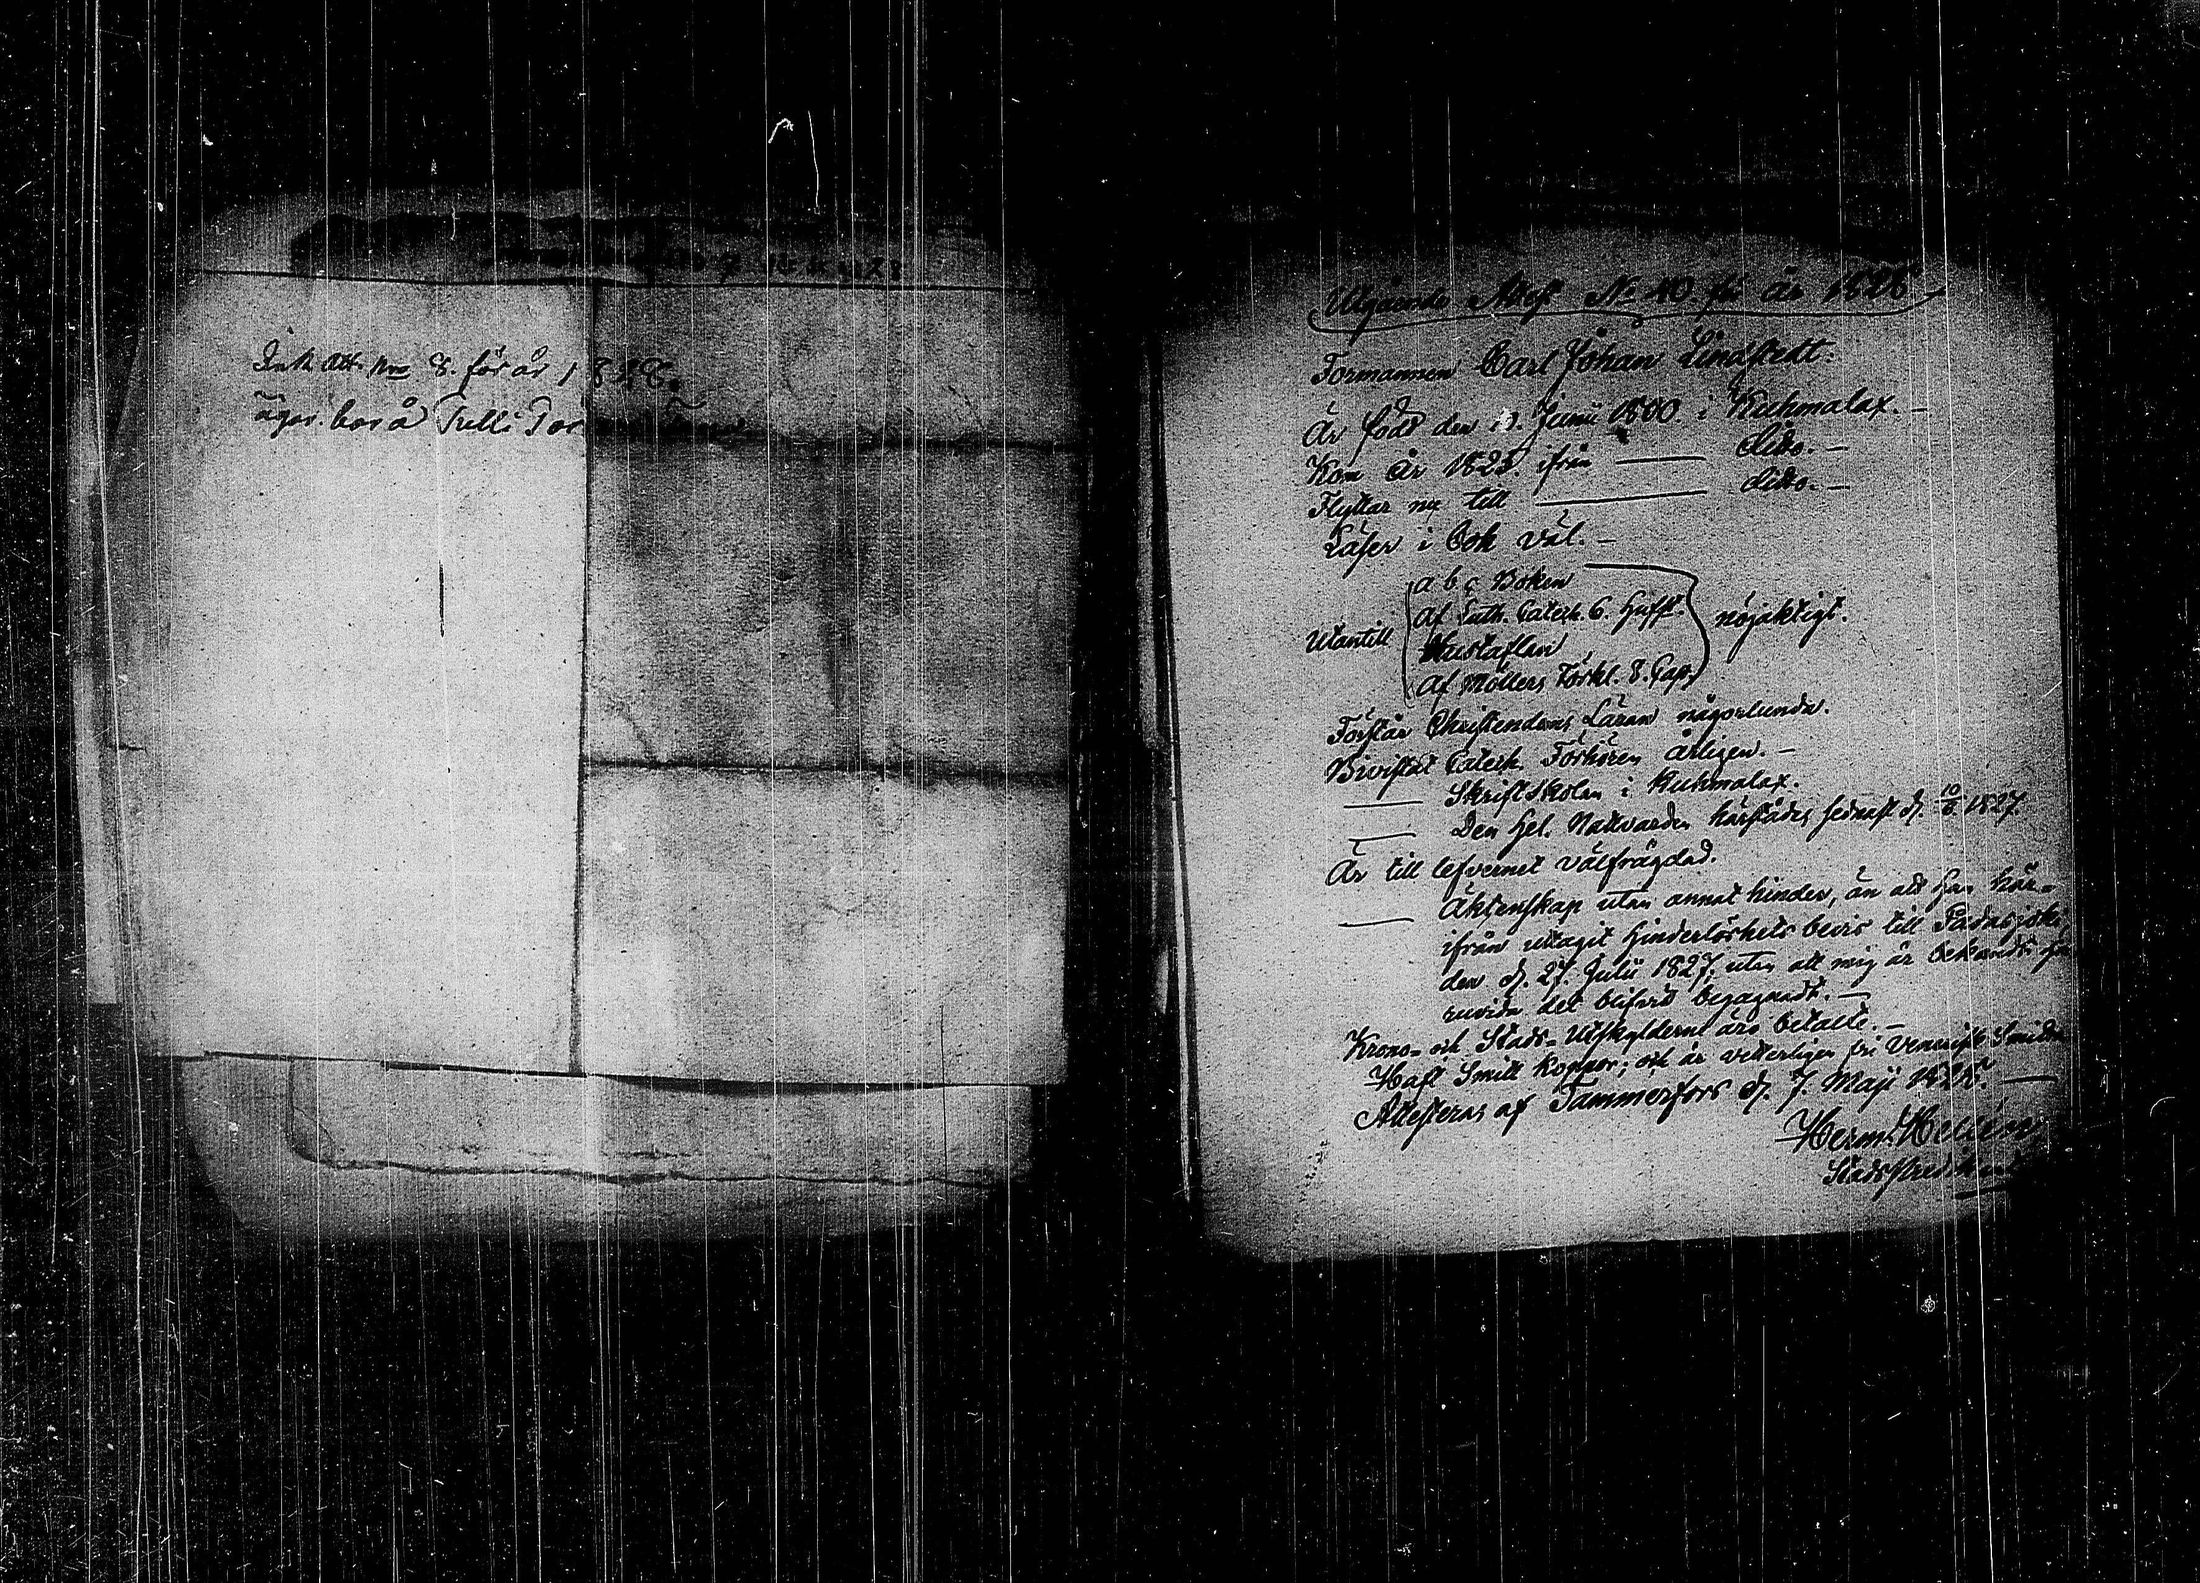 Ink Att. Nro 8. för år 1828.
ägor. bor å Tulli Tor
Utgående Attest № 40. för år 1828
Formannen Carl Johan Lindstedt.
Är född den 10. Junii 1800. i Kuhmalax. –
Kom år 1825 ifrån —— dito. –
Flyttar nu till —— ditto. –
Läser i Bok väl. –
Utantill
a b c Boken
Af Luth. Catech. 6. Hufst.
Hustaflan
Af Möllers Förkl. 8. Cap.
nöjaktigt.
Förstår Christendoms Läran någorlunda.
Bivistat Catech. Förhören årligen. –
—— Skriftskolan i Kuhmalax.
—— Den Hel. Nattvarden härstädes sednast d. 10/6 1827.
Är till lefvernet välfrägdad.
—— Äktenskap utan annat hinder, än att han här-
ifrån uttagit Hinderlöshets bevis till Padasjoki
den d. 27. Julii 1827, utan att mig är bekandt
det blifvit begagnadt. –
Krono- och Stads-Utskylderne äro betalte. –
Haft Smitt koppor; och är vetterligen fri Venerisk Smitta
Attesteras af Tammerfors d. 7. Maji 1828. ——
Herm. Hellén
StadsPredikant